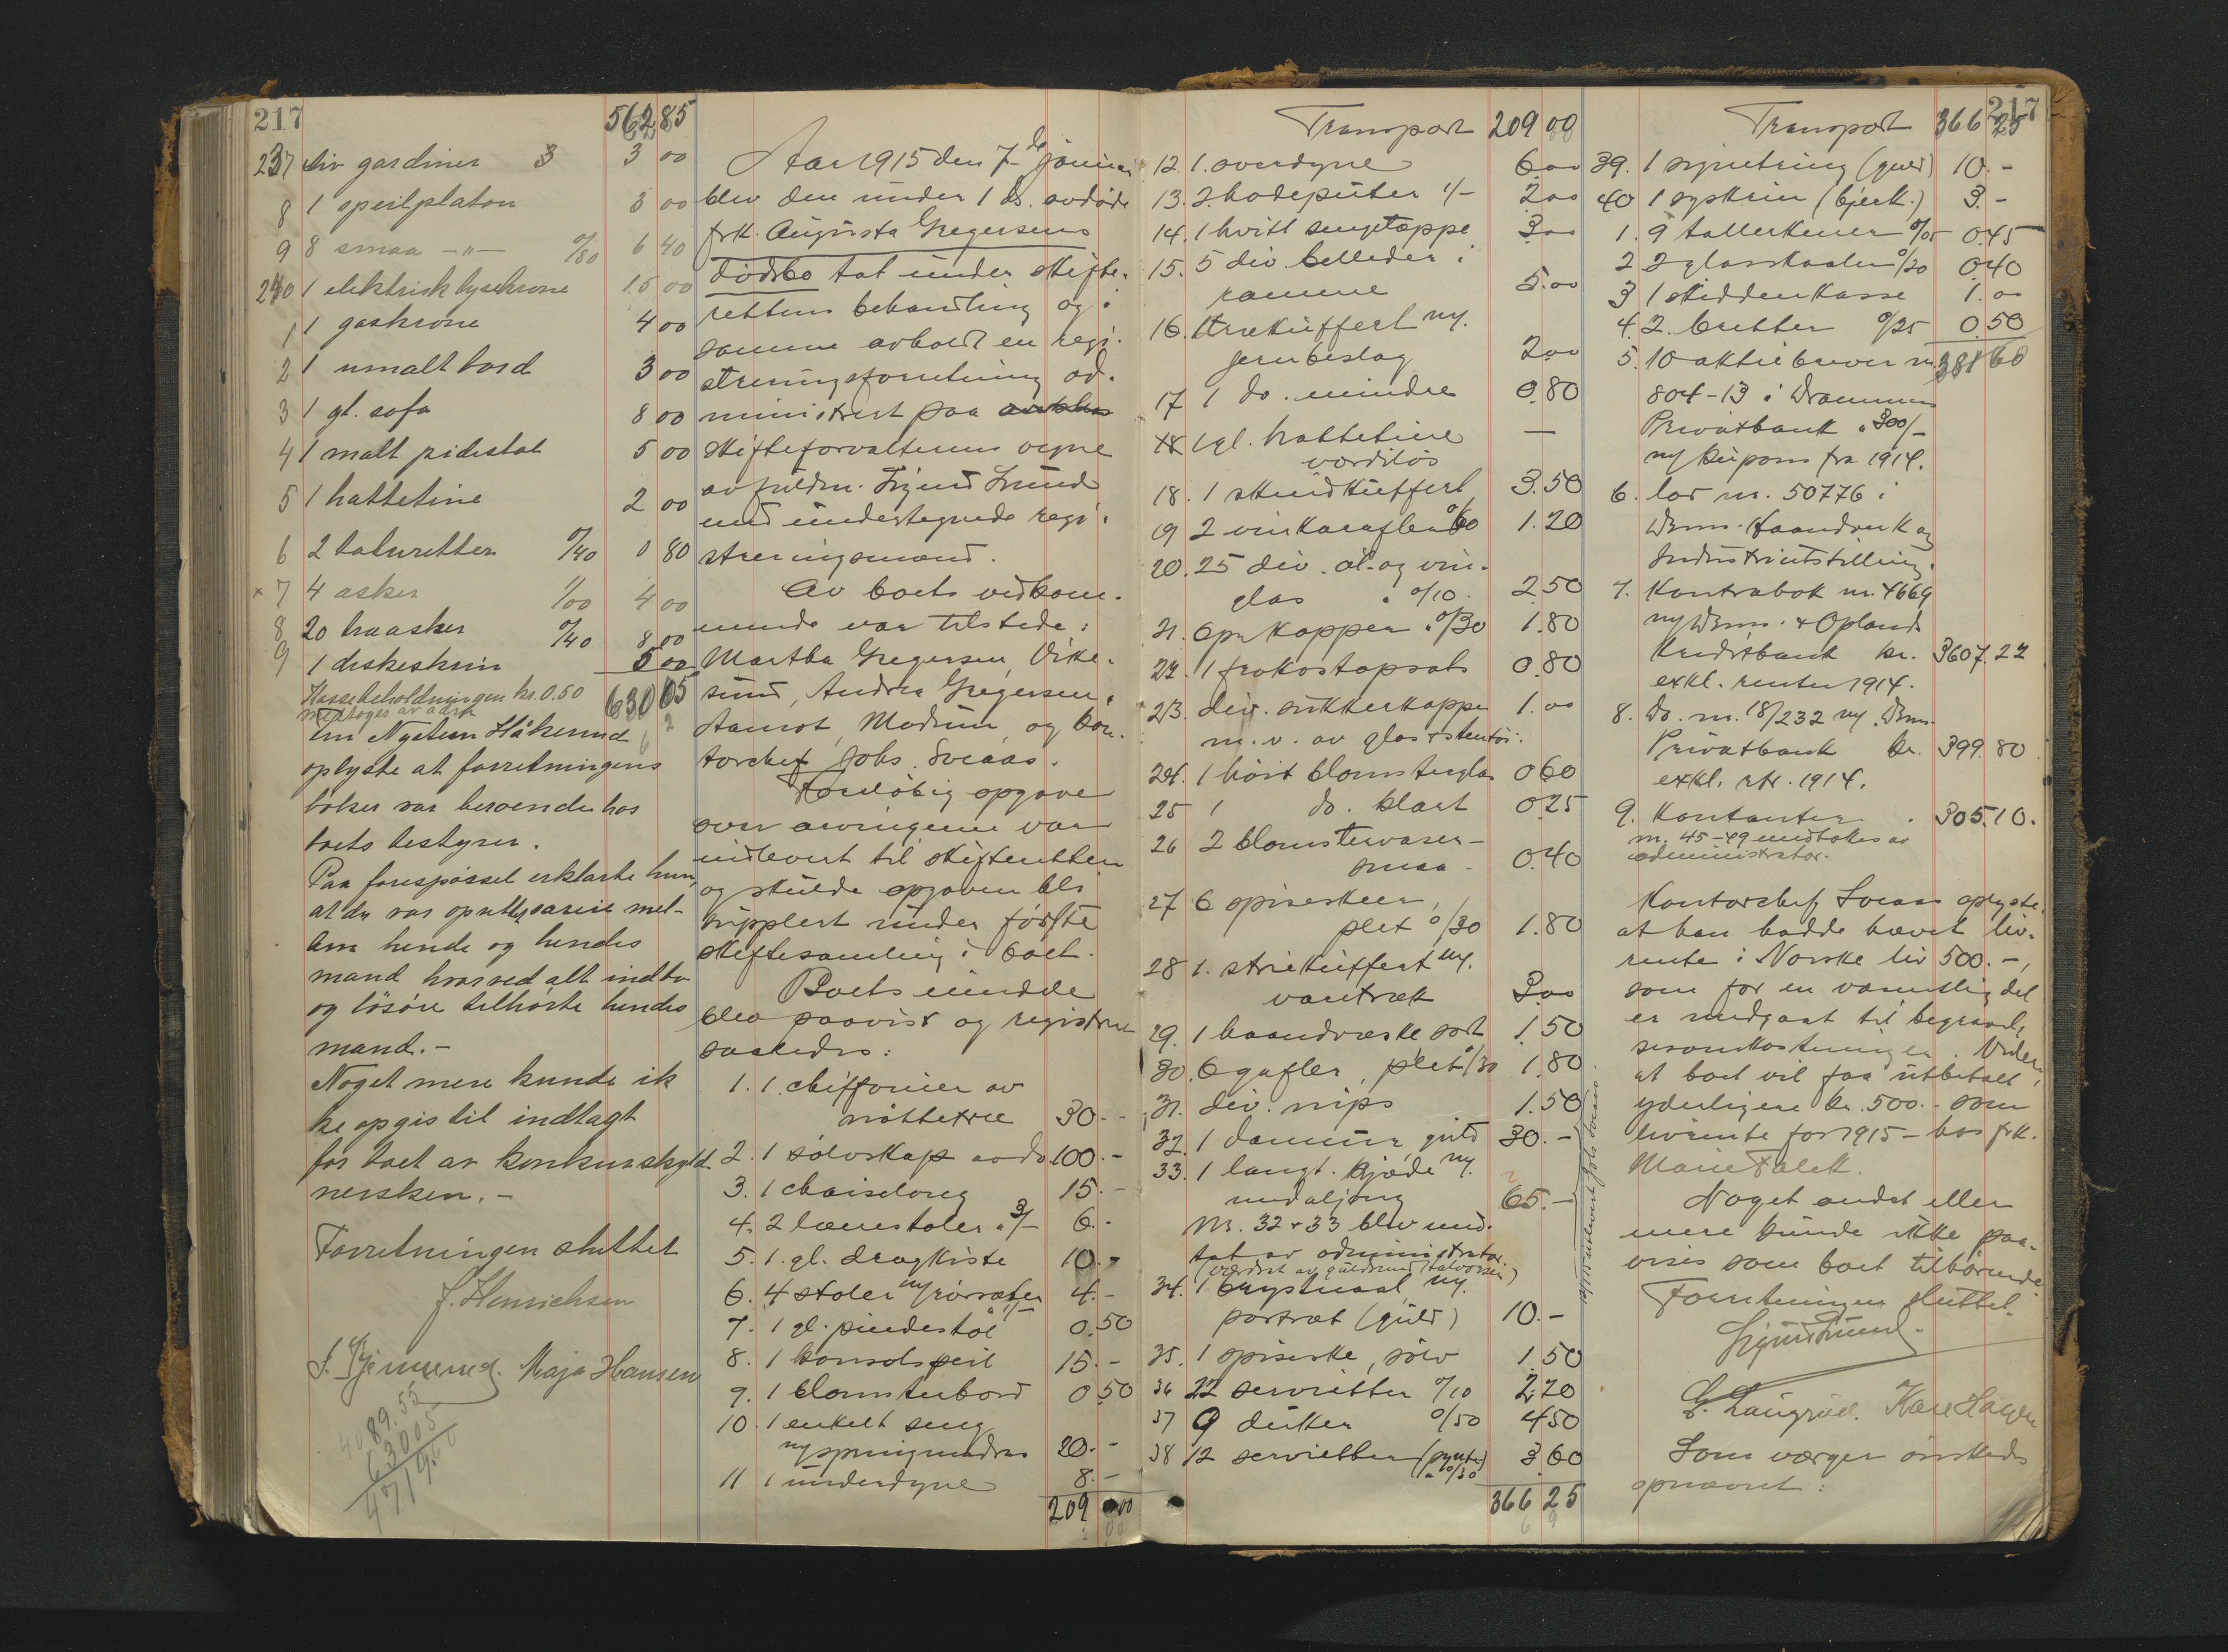 217
562 85
237 div gardiner 3 3 00
8 1 speilplaton 3 00
9 8 smaa -"- 0/80 6 40
240 1 elektrisk lysekrone 15 00
1 1 gaskrone 4 00
2 1 umalt bord 3 00
3 1 gl. sofa 8 00
4 1 malt pidestal 5 00
5 1 hattetine 2 00
6 2 taburetter 0/40 0 80
× 7 4 asker 1/00 4 00
8 20 traasker 0/40 8 00
9 1 diskeskrin 5 00
Kassebeholdningen kr. 0.50 630 05
medtoges av adm
Fru Nysteen Håkerud
oplyste at forretningens
bøker var beroende hos
boets bestyrer.
Paa forespørsel erklærte hun,
at der var oprettet særeie mel-
lem hende og hendes
mand hvorved alt indbo
og løsøre tilhørte hendes
mand.-
Noget mere kunde ik
ke opgis til indtagt
for boet av konkursskyld-
nersken.-
Forretningen sluttet
J. Henrichsen
Maja Hansen
4089.55
630 05
4719.60
Aar 1915 den 7de januar
blev den under 1 ds. avdøde
frk. Augusta Gregersens
dødsbo tat under skifte-
rettens behandling og i
samme avholdt en regi-
streringsforretning ad-
ministrert paa
skifteforvalterens vegne
av fuldm. Sigurd Lund
med undertegnede regi-
streringsmænd.
Av boets vedkom-
mende var tilstede:
Martha Gregersen, Vike-
sund, Andrea Gregersen,
Aamot, Modum, og kon-
torchef Johs. Sveaas.
Foreløbig opgave
over arvingerne var
indlevert til skifteretten
og skulde opgaven bli
supplert under første
skiftesamling i boet.
Boets midde
blev paavist og registrert
saaledes:
1. 1 chiffonier av
nøttetræ 30.-
2. 1 sølvskap av do 100.-
3. 1 chaiselong 15.-
4. 2 lænestoler a 3/- 6.-
5. 1 gl. dragkiste 10.-
6. 4 stoler m/rørsæter a 1/- 4.-
7. 1 gl. pindestol 0.50
8. 1 konsolspeil 15.-
9. 1 blomsterbord 0 50
10. 1 enkelt seng
m/springmadras 20.-
11 1 underdyne 8.-
209 00
Transport 209 00
12. 1 overdyne 6 00
13. 2 hodeputer 1/- 2 00
14. 1 hvitt sengetæppe 3 00
15. 5 div. billeder i
ramme 5.00
16. 1 trækuffert m/
jernbeslag 2 00
17 1 do. mindre 0.80
1 gl. hattetine —
værdiløs
18. 1 skindkuffert 3.50
19 2 vinkarafler 0/60 1.20
20. 25 div. øl- og vin-
glas a 0/10 2.50
21. 6 pr kopper a 0/30 1.80
22. 1 frokostopsats 0.80
23. div. sukkerkopper 1.00
m.v. av glas & stentøi.
24. 1 høit blomsterglas 0 60
25 1 do. klart 0.25
26 2 blomstervaser -
smaa - 0.40
27 6 spiseskeer,
plet 0/30 1.80
28 1. strikuffert m/
vartræk 3 00
29. 1 haandvæske sort 1.50
30. 6 gafler, plet 0/30 1.80
31. div. nips 1.50
32. 1 dameur, guld 30.-
33. 1 langt. kjæde m/
medaljong 65.-
Nr. 32 & 33 blev med-
tat av administrator
(værdsat av guldsmed Halvorsen)
34. 1 brystnaal m/
portræt (guld) 10.-
35. 1 spiseske, sølv 1.50
36 22 servietter 0/10 2.20
37 9 duker 0/50 4.50
38 12 servietter (pynte) 3.60
a 0/30
366 25
217
Transport 366 25
39. 1 signetring (guld) 10.-
40 1 syskrin (bjerk.) 3.-
1. 9 tallerkener 0/05 0.45
2 2 glasskaaler 0/20 0.40
3 1 skiddenkasse 1.00
4. 2 bretter 0/25 0.50
5. 10 aktiebrever nr. 381 60
804-13 i Drammens
Privatbank a 300/-
m/ kupons fra 1914.
6. lod nr. 50776 i
Drm. Haandverk og
Industriutstilling.
7. Kontrabok nr. 4669
m/ Drm. & Oplands
Kreditbank kr. 3607.22
exkl. renter 1914.
8. Do. nr. 18/232 m/ Drm.
Privatbank kr. 399.80
exkl. rtr. 1914.
9. Kontanter 305.10.
nr. 45-49 medtokes av
administrator.
Kontorchef Sveaas oplyste,
at han hadde hævet liv-
rente i Norske liv 500.-,
som for en væsentlig del
er medgaat til begravel-
sesomkostninger. Videre,
at boet vil faa utbetalt
yderligere kr. 500.- som
livrente for 1915 - hos frk.
Marie Falck.
Noget andet eller
mere kunde ikke paa-
vises som boet tilhørende
Forretningen sluttet.
Sigurd Lund.
Som værger ønskedes
opnævnt: